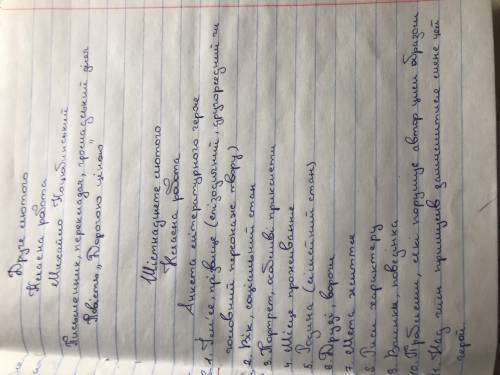 Друге лютого
Класна робота
Михайло Коцюбинський
Письменник, перекладач, громадський діяч
Повість „Дорогою ціною"
Шістнадцяте лютого
Класна робота
Анкета літературного героя
1. Ім'я, прізвище (епізодичний, другорядний чи
головний персонаж твору)
2. Вік, соціальний стан
3. Портрет, особливі прикмети
4. Місце проживання
5. Родина (сімейний стан)
6. Друзі, вороги
7. Мета життя
8. Риси характеру
9. Вчинки, поведінка
10. Проблеми, які порушує автор цим образом
11. Над чим примусив замислитися мене цей
герой